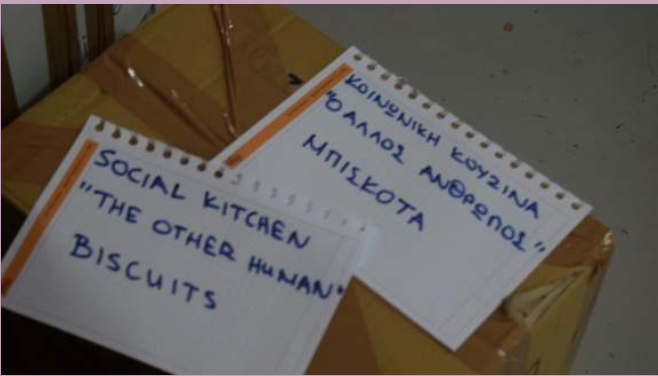 SOCIAL KITCHEN
"THE OTHER HUMAN"
BISCUITS
ΚΟΙΝΩΝΙΚΗ ΚΟΥΖΙΝΑ
"Ο ΑΛΛΟΣ ΑΝΘΡΩΠΟΣ"
ΜΠΙΣΚΟΤΑ